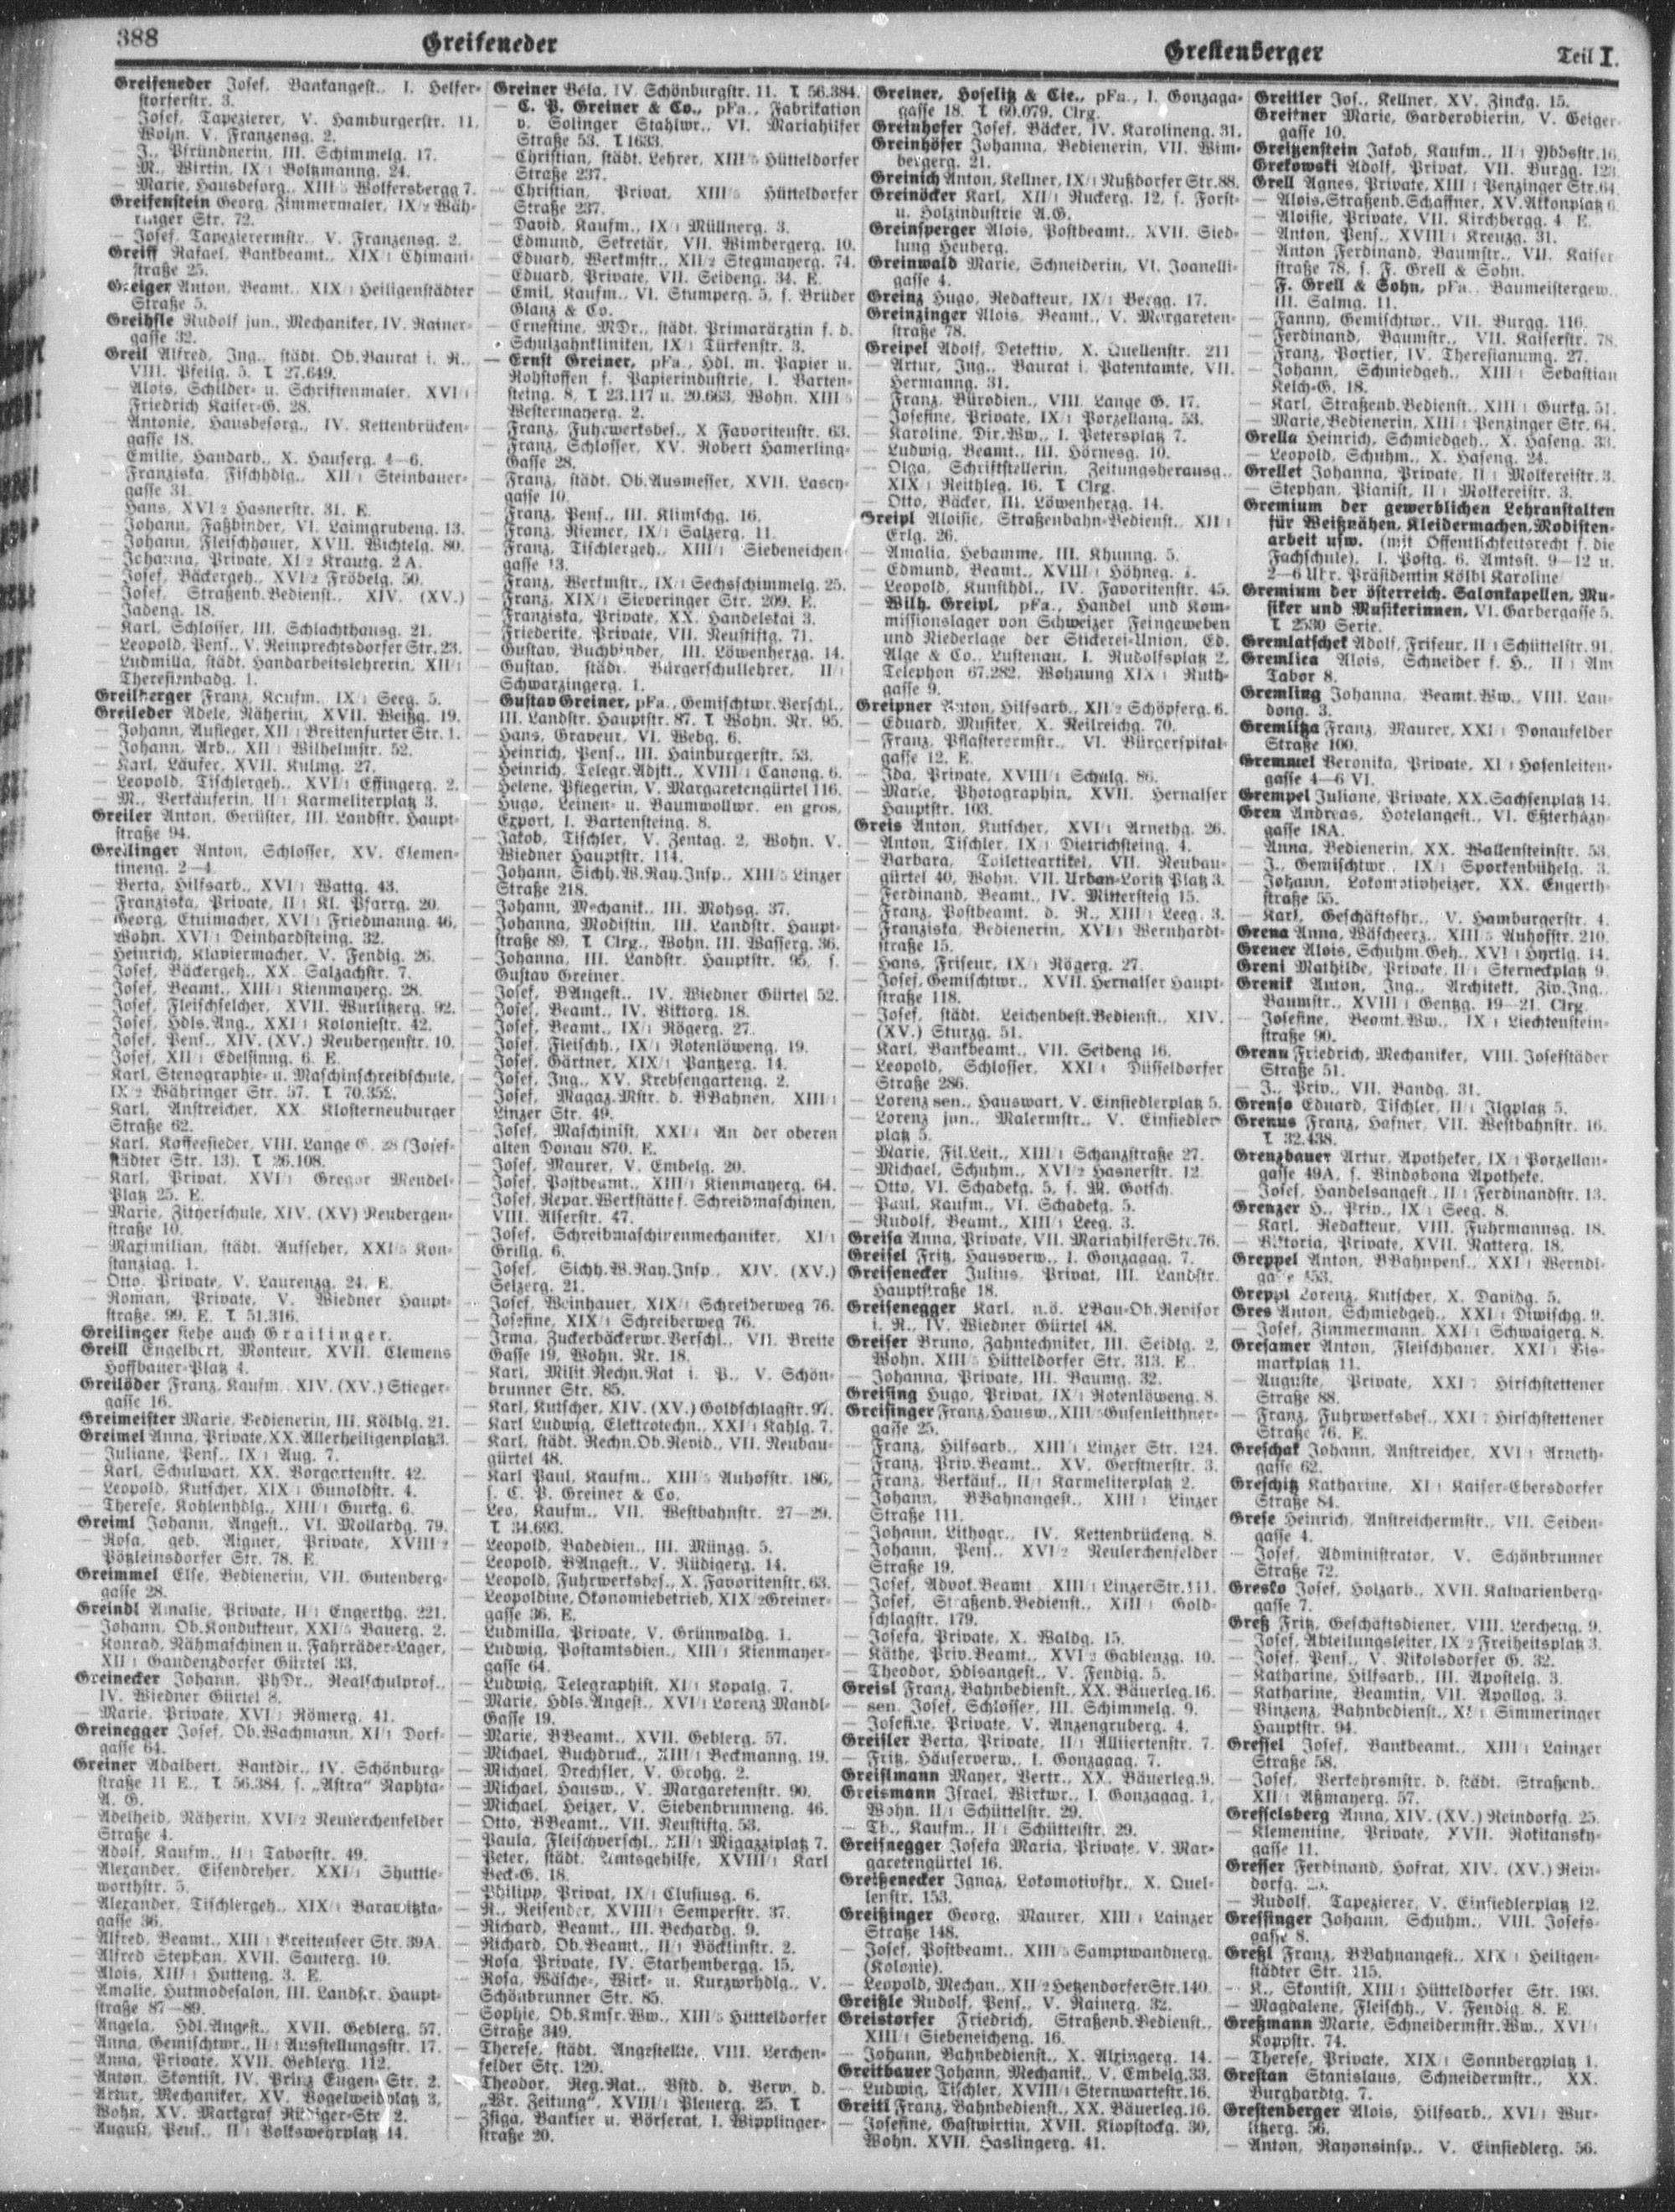 388
Greifeneder
Grestenberger
Teil I.
Greifeneder Josef, Bankangest., I. Helfer-
storferstr. 3.
— Josef, Tapezierer, V. Hamburgerstr. 11,
Wohn. V. Franzensg. 2.
— J., Pfründnerin, III. Schimmelg. 17.
— M., Wirtin, IX/1 Boltzmanng. 24.
— Marie, Hausbesorg., XIII/5 Wolfersbergg 7.
Greifenstein Georg, Zimmermaler, IX/2 Wäh-
ringer Str. 72.
— Josef, Tapezierermstr., V. Franzensg. 2.
Greiff Rafael, Bankbeamt., XIX/1 Chimani-
straße 25.
Greiger Anton, Beamt., XIX/1 Heiligenstädter
Straße 5.
Greihsle Rudolf jun., Mechaniker, IV. Rainer-
gasse 32.
Greil Alfred, Ing., städt. Ob.Baurat i. R.,
VIII. Pfeilg. 5. T 27.649.
— Alois, Schilder- u. Schriftenmaler, XVI/1
Friedrich Kaiser-G. 28.
— Antonie, Hausbesorg., IV. Kettenbrücken-
gasse 18.
— Emilie, Handarb., X. Hauserg. 4—6.
— Franziska, Fischhdlg., XII/1 Steinbauer-
gasse 31.
— Hans, XVI/2 Hasnerstr. 31. E.
— Johann, Faßbinder, VI. Laimgrubeng. 13.
— Johann, Fleischhauer, XVII. Wichtelg. 80.
— Johanna, Private, XI/2 Krautg. 2 A.
— Josef, Bäckergeh., XVI/2 Fröbelg. 50.
— Josef, Straßenb.Bedienst., XIV. (XV.)
Jadeng. 18.
— Karl, Schlosser, III. Schlachthausg. 21.
— Leopold, Pens., V. Reinprechtsdorfer Str. 23.
— Ludmilla, städt. Handarbeitslehrerin, XII/1
Theresienbadg. 1.
Greilberger Franz, Kaufm., IX/1 Seeg. 5.
Greileder Adele, Näherin, XVII. Weißg. 19.
— Johann, Aufleger, XII/1 Breitenfurter Str. 1.
— Johann, Arb., XII/1 Wilhelmstr. 52.
— Karl, Läufer, XVII. Kulmg. 27.
— Leopold, Tischlergeh., XVI/1 Effingerg. 2.
— M., Verkäuferin, II/1 Karmeliterplatz 3.
Greiler Anton, Gerüster, III. Landstr. Haupt-
straße 94.
Greilinger Anton, Schlosser, XV. Clemen-
tineng. 2—4
— Berta, Hilfsarb., XVI/1 Wattg. 43.
— Franziska, Private, II/1 Kl. Pfarrg. 20.
— Georg, Etuimacher, XVI/1 Friedmanng. 46,
Wohn. XVI/1 Deinhardsteing. 32.
— Heinrich, Klaviermacher, V. Fendig. 26.
— Josef, Bäckergeh., XX. Salzachstr. 7.
— Josef, Beamt., XIII/1 Kienmayerg. 28.
— Josef, Fleischselcher, XVII. Wurlitzerg. 92.
— Josef, Hdls.Ang., XXI/1 Koloniestr. 42.
— Josef, Pens., XIV. (XV.) Neubergenstr. 10.
— Josef, XII/1 Edelsinng. 6. E.
— Karl, Stenographie- u. Maschinschreibschule,
IX/2 Währinger Str. 57. T 70.352.
— Karl, Anstreicher, XX. Klosterneuburger
Straße 62.
— Karl, Kaffeesieder, VIII. Lange G. 28 (Josef-
städter Str. 13). T 26.108.
— Karl, Privat, XVI/1 Gregor Mendel-
Platz 25. E.
— Marie, Zitherschule, XIV. (XV) Neubergen-
straße 10.
— Maximilian, städt. Aufseher, XXI/5 Kon-
stanziag. 1.
— Otto, Private, V. Laurenzg. 24. E.
— Roman, Private, V. Wiedner Haupt-
straße. 99. E. T 51.316.
Greilinger siehe auch Grailinger.
Greill Engelbert, Monteur, XVII. Clemens
Hoffbauer-Platz 4.
Greilöder Franz, Kaufm., XIV. (XV.) Stieger-
gasse 16.
Greimeister Marie, Bedienerin, III. Kölblg. 21.
Greimel Anna, Private, XX. Allerheiligenplatz3.
— Juliane, Pens., IX/1 Aug. 7.
— Karl, Schulwart, XX. Vorgartenstr. 42.
— Leopold, Kutscher, XIX/1 Gunoldstr. 4.
— Therese, Kohlenhdlg., XIII/1 Gurkg. 6.
Greiml Johann, Angest., VI. Mollardg. 79.
— Rosa, geb. Aigner, Private, XVIII/2
Pötzleinsdorfer Str. 78. E.
Greimmel Else, Bedienerin, VII. Gutenberg-
gasse 28.
Greindl Amalie, Private, II/1 Engerthg. 221.
— Johann, Ob.Kondukteur, XXI/5 Bauerg. 2.
— Konrad, Nähmaschinen u. Fahrräder-Lager,
XII/1 Gaudenzdorfer Gürtel 33.
Greinecker Johann, PhDr., Realschulprof.,
IV. Wiedner Gürtel 8.
— Marie, Private, XVI/1 Römerg. 41.
Greinegger Josef, Ob.Wachmann, XI/1 Dorf-
gasse 64.
Greiner Adalbert, Bankdir., IV. Schönburg-
straße 11 E., T 56.384, s. „Astra" Naphta-
A. G.
— Adelheid, Näherin, XVI/2 Neulerchenfelder
Straße 4.
— Adolf, Kaufm., II/1 Taborstr. 49.
— Alexander, Eisendreher, XXI/1 Shuttle-
worthstr. 5.
— Alexander, Tischlergeh., XIX/1 Barawitzka-
gasse 36.
— Alfred, Beamt., XIII/1 Breitenseer Str. 39A.
— Alfred Stephan, XVII. Sauterg. 10.
— Alois, XIII/1 Hutteng. 3. E.
— Amalie, Hutmodesalon, III. Landstr. Haupt-
straße 87—89.
— Angela, Hdl.Angest., XVII. Geblerg. 57.
— Anna, Gemischtwr., II/1 Ausstellungsstr. 17.
— Anna, Private, XVII. Geblerg. 112.
— Anton, Skontist, IV. Prinz Eugen-Str. 2.
— Artur, Mechaniker, XV. Vogelweidplatz 3,
Wohn. XV. Markgraf Rüdiger-Str. 2.
— August, Pens., II/1 Volkswehrplatz 14.
Greiner Béla, IV. Schönburgstr. 11. T 56.384.
— C. P. Greiner & Co., pFa., Fabrikation
v. Solinger Stahlwr., VI. Mariahilfer
Straße 53. T 1633.
— Christian, städt. Lehrer, XIII/5 Hütteldorfer
Straße 237.
— Christian, Privat, XIII/5 Hütteldorfer
Straße 237.
— David, Kaufm., IX/1 Müllnerg. 3.
— Edmund, Sekretär, VII. Wimbergerg. 10.
— Eduard, Werkmstr., XII/2 Stegmayerg. 74.
— Eduard, Private, VII. Seideng. 34. E.
— Emil, Kaufm., VI. Stumperg. 5, s. Brüder
Glanz & Co.
— Ernestine, MDr., städt. Primarärztin f. d.
Schulzahnkliniken, IX/1 Türkenstr. 3.
— Ernst Greiner, pFa., Hdl. m. Papier u.
Rohstoffen f. Papierindustrie, I. Barten-
steing. 8, T 23.117 u. 20.663, Wohn. XIII/5
Westermayerg. 2.
— Franz, Fuhrwerksbes., X Favoritenstr. 63.
— Franz, Schlosser, XV. Robert Hamerling-
Gasse 28.
— Franz, städt. Ob.Ausmesser, XVII. Lascy-
gasse 10.
— Franz, Pens., III. Klimschg. 16.
— Franz, Riemer, IX/1 Salzerg. 11.
— Franz, Tischlergeh., XIII/1 Siebeneichen-
gasse 13.
— Franz, Werkmstr., IX/1 Sechsschimmelg. 25.
— Franz, XIX/1 Sieveringer Str. 209. E.
— Franziska, Private, XX. Handelskai 3.
— Friederike, Private, VII. Neustiftg. 71.
— Gustav, Buchbinder, III. Löwenherzg. 14.
— Gustav, städt. Bürgerschullehrer, II/1
Schwarzingerg. 1.
— Gustav Greiner, pFa., Gemischtwr.Verschl.,
III. Landstr. Hauptstr. 87. T Wohn. Nr. 95.
— Hans, Graveur, VI. Webg. 6.
— Heinrich, Pens., III. Hainburgerstr. 53.
— Heinrich, Telegr.Adjkt., XVIII/1 Canong. 6.
— Helene, Pflegerin, V. Margaretengürtel 116.
— Hugo, Leinen- u. Baumwollwr. en gros,
Export, I. Bartensteing. 8.
— Jakob, Tischler, V. Zentag. 2, Wohn. V.
Wiedner Hauptstr. 114.
— Johann, Sichh.W.Ray.Insp., XIII/5 Linzer
Straße 218.
— Johann, Mechanik., III. Mohsg. 37.
— Johanna, Modistin, III. Landstr. Haupt-
straße 89, T Clrg., Wohn. III. Wasserg. 36.
— Johanna, III. Landstr. Hauptstr. 95, s.
Gustav Greiner.
— Josef, BAngest., IV. Wiedner Gürtel 52.
— Josef, Beamt., IV. Viktorg. 18.
— Josef, Beamt., IX/1 Rögerg. 27.
— Josef, Fleischh., IX/1 Rotenlöweng. 19.
— Josef, Gärtner, XIX/1 Pantzerg. 14.
— Josef, Ing., XV. Krebsengarteng. 2.
— Josef, Magaz.Mstr. d. BBahnen, XIII/1
Linzer Str. 49.
— Josef, Maschinist, XXI/1 An der oberen
alten Donau 870. E.
— Josef, Maurer, V. Embelg. 20.
— Josef, Postbeamt., XIII/1 Kienmayerg. 64.
— Josef, Repar.Werkstätte f. Schreibmaschinen,
VIII. Alserstr. 47.
— Josef, Schreibmaschinenmechaniker, XI/1
Grillg. 6.
— Josef, Sichh.W.Ray.Insp., XIV. (XV.)
Selzerg. 21.
— Josef, Weinhauer, XIX/1 Schreiberweg 76.
— Josefine, XIX/1 Schreiberweg 76.
— Irma, Zuckerbäckerwr.Verschl., VII. Breite
Gasse 19, Wohn. Nr. 18.
— Karl, Milit.Rechn.Rat i. P., V. Schön-
brunner Str. 85.
— Karl, Kutscher, XIV. (XV.) Goldschlagstr. 97.
— Karl Ludwig, Elektrotechn., XXI/1 Kahlg. 7.
— Karl, städt. Rechn.Ob.Revid., VII. Neubau-
gürtel 48.
— Karl Paul, Kaufm., XIII/5 Auhofstr. 186,
s. C. P. Greiner & Co.
— Leo, Kaufm., VII. Westbahnstr. 27—29.
T 34.693.
— Leopold, Badedien., III. Münzg. 5.
— Leopold, BAngest., V. Rüdigerg. 14.
— Leopold, Fuhrwerksbes., X. Favoritenstr. 63.
— Leopoldine, Ökonomiebetrieb, XIX/2Greiner-
gasse 36. E.
— Ludmilla, Private, V. Grünwaldg. 1.
— Ludwig, Postamtsdien., XIII/1 Kienmayer-
gasse 64.
— Ludwig, Telegraphist, XI/1 Kopalg. 7.
— Marie, Hdls.Angest., XVI/1 Lorenz Mandl-
Gasse 19.
— Marie, BBeamt., XVII. Geblerg. 57.
— Michael, Buchdruck., XIII/1 Beckmanng. 19.
— Michael, Drechsler, V. Grohg. 2.
— Michael, Hausw., V. Margaretenstr. 90.
— Michael, Heizer, V. Siebenbrunneng. 46.
— Otto, BBeamt., VII. Neustiftg. 53.
— Paula, Fleischverschl., XII/1 Migazziplatz 7.
— Peter, städt. Amtsgehilfe, XVIII/1 Karl
Beck-G. 18.
— Philipp, Privat, IX/1 Clusiusg. 6.
— R., Reisender, XVIII/1 Semperstr. 37.
— Richard, Beamt., III. Bechardg. 9.
— Richard, Ob.Beamt., II/1 Böcklinstr. 2.
— Rosa, Private, IV. Starhembergg. 15.
— Rosa, Wäsche-, Wirk- u. Kurzwrhdlg., V.
Schönbrunner Str. 85.
— Sophie, Ob.Kmsr.Ww., XIII/5 Hütteldorfer
Straße 349.
— Therese, städt. Angestellte, VIII. Lerchen-
felder Str. 120.
— Theodor, Reg.Rat., Vstd. d. Verw. d.
„Wr. Zeitung", XVIII/1 Plenerg. 25. T
— Zsiga, Bankier u. Börserat, I. Wipplinger-
straße 20.
Greiner, Hoselitz & Cie., pFa., I. Gonzaga-
gasse 18. T 60.079. Clrg.
Greinhofer Josef, Bäcker, IV. Karolineng. 31.
Greinhöfer Johanna, Bedienerin, VII. Wim-
bergerg. 21.
Greinich Anton, Kellner, IX/1 Nußdorfer Str. 88.
Greinöcker Karl, XII/1 Ruckerg. 12, s. Forst-
u. Holzindustrie A.G.
Greinsperger Alois, Postbeamt., XVII. Sied-
lung Heuberg.
Greinwald Marie, Schneiderin, VI. Joanelli-
gasse 4.
Greinz Hugo, Redakteur, IX/1 Bergg. 17.
Greinzinger Alois, Beamt., V. Margareten-
straße 78.
Greipel Adolf, Detektiv, X. Quellenstr. 211
— Artur, Ing., Baurat i. Patentamte, VII.
Hermanng. 31.
— Franz, Bürodien., VIII. Lange G. 17.
— Josefine, Private, IX/1 Porzellang. 53.
— Karoline, Dir.Ww., I. Petersplatz 7.
— Ludwig, Beamt., III. Hörnesg. 10.
— Olga, Schriftstellerin, Zeitungsherausg.,
XIX/1 Reithleg. 16. T Clrg.
— Otto, Bäcker, III. Löwenherzg. 14.
Greipl Aloisie, Straßenbahn-Bedienst., XII/1
Erlg. 26.
— Amalia, Hebamme, III. Khunng. 5.
— Edmund, Beamt., XVIII/1 Höhneg.
— Leopold, Kunsthdl., IV. Favoritenstr. 45.
— Wilh. Greipl, pFa., Handel und Kom-
missionslager von Schweizer Feingeweben
und Niederlage der Stickerei-Union, Ed.
Alge & Co., Lustenau, I. Rudolfsplatz 2,
Telephon 67.282, Wohnung XIX/1 Ruth-
gasse 9.
Greipner Anton, Hilfsarb., XII/2 Schöpferg. 6.
— Eduard, Musiker, X. Reilreichg. 70.
— Franz, Pflasterermstr., VI. Bürgerspital-
gasse 12. E.
— Ida, Private, XVIII/1 Schulg. 86.
— Marie, Photographin, XVII. Hernalser
Hauptstr. 103.
Greis Anton, Kutscher, XVI/1 Arnethg. 26.
— Anton, Tischler, IX/1 Dietrichsteing. 4.
— Barbara, Toiletteartikel, VII. Neubau-
gürtel 40, Wohn. VII. Urban-Loritz Platz 3.
— Ferdinand, Beamt., IV. Mittersteig 15.
— Franz, Postbeamt. d. R., XIII/1 Leeg. 3.
— Franziska, Bedienerin, XVI/1 Wernhardt-
straße 15.
— Hans, Friseur, IX/1 Rögerg. 27.
— Josef, Gemischtwr., XVII. Hernalser Haupt-
straße 118.
— Josef, städt. Leichenbest.Bedienst., XIV.
(XV.) Sturzg. 51.
— Karl, Bankbeamt., VII. Seideng 16.
— Leopold, Schlosser, XXI/1 Düsseldorfer
Straße 286.
— Lorenz sen., Hauswart, V. Einsiedlerplatz 5.
— Lorenz jun., Malermstr., V. Einsiedler-
platz 5.
— Marie, Fil.Leit., XIII/1 Schanzstraße 27.
— Michael, Schuhm., XVI/2 Hasnerstr. 12.
— Otto, VI. Schadekg. 5, s. M. Gotsch.
— Paul, Kaufm., VI. Schadekg. 5.
— Rudolf, Beamt., XIII/1 Leeg. 3.
Greisa Anna, Private, VII. Mariahilfer Str. 76.
Greisel Fritz, Hausverw., I. Gonzagag. 7.
Greisenecker Julius, Privat, III. Landstr.
Hauptstraße 18.
Greisenegger Karl, n.ö. LBau-Ob.Revisor
i. R., IV. Wiedner Gürtel 48.
Greiser Bruno, Zahntechniker, III. Seidlg. 2,
Wohn. XIII/5 Hütteldorfer Str. 313. E.
— Johanna, Private, III. Baumg. 32.
Greising Hugo, Privat, IX/1 Rotenlöweng. 8.
Greisinger Franz, Hausw., XIII/5Gusenleithner-
gasse 25.
— Franz, Hilfsarb., XIII/1 Linzer Str. 124.
— Franz, Priv.Beamt., XV. Gerstnerstr. 3.
— Franz, Verkäuf., II/1 Karmeliterplatz 2.
— Johann, BBahnangest., XIII/1 Linzer
Straße 111.
— Johann, Lithogr., IV. Kettenbrückeng. 8.
— Johann, Pens., XVI/2 Neulerchenfelder
Straße 19.
— Josef, Advok.Beamt., XIII/1 Linzer Str. 111.
— Josef, Straßenb.Bedienst., XIII/1 Gold-
schlagstr. 179.
— Josefa, Private, X. Waldg. 15.
— Käthe, Priv.Beamt., XVI/2 Gablenzg. 10.
— Theodor, Hdlsangest., V. Fendig. 5.
Greisl Franz, Bahnbedienst., XX. Bäuerleg.16.
— sen. Josef, Schlosser, III. Schimmelg. 9.
— Josefine, Private, V. Anzengruberg. 4.
Greisler Berta, Private, II/1 Alliiertenstr. 7.
— Fritz, Häuserverw., I. Gonzagag. 7.
Greislmann Mayer, Vertr., XX. Bäuerleg.9.
Greismann Israel, Wirkwr., I. Gonzagag. 1,
Wohn. II/1 Schüttelstr. 29.
— Th., Kaufm., II/1 Schüttelstr. 29.
Greisnegger Josefa Maria, Private, V. Mar-
garetengürtel 16.
Greißenecker Ignaz, Lokomotivfhr., X. Quel-
lenstr. 153.
Greißinger Georg, Maurer, XIII/1 Lainzer
Straße 148.
— Josef, Postbeamt., XIII/5 Samptwandnerg.
(Kolonie).
— Leopold, Mechan., XII/2 Hetzendorfer Str. 140.
Greißle Rudolf, Pens., V. Rainerg. 32.
Greistorfer Friedrich, Straßenb.Bedienst.,
XIII/1 Siebeneicheng. 16.
— Johann, Bahnbedienst., X. Alxingerg. 14.
Greitbauer Johann, Mechanik., V. Embelg.33.
— Ludwig, Tischler, XVIII/1 Sternwartestr.16.
Greitl Franz, Bahnbedienst., XX. Bäuerleg.16.
— Josefine, Gastwirtin, XVII. Klopstockg. 30,
Wohn. XVII. Haslingerg. 41.
Greitler Jos., Kellner, XV. Zinckg. 15.
Greitner Marie, Garderobierin, V. Geiger-
gasse 10.
Greitzenstein Jakob, Kaufm., II/1 Ybbsstr.16.
Grekowski Adolf, Privat, VII. Burgg. 123.
Grell Agnes, Private, XIII/1 Penzinger Str.64.
— Alois, Straßenb.Schaffner, XV. Akkonplatz 6.
— Aloisie, Private, VII. Kirchbergg. 4 E.
— Anton, Pens., XVIII/1 Kreuzg. 31.
— Anton Ferdinand, Baumstr., VII. Kaiser-
straße 78, s. F. Grell & Sohn.
— F. Grell & Sohn, pFa., Baumeistergew.,
III. Salmg. 11.
— Fanny, Gemischtwr., VII. Burgg. 116.
— Ferdinand, Baumstr., VII. Kaiserstr. 78.
— Franz, Portier, IV. Theresianumg. 27.
— Johann, Schmiedgeh., XIII/1 Sebastian
Kelch-G. 18.
— Karl, Straßenb.Bedienst., XIII/1 Gurkg. 51.
— Marie, Bedienerin, XIII/1 Penzinger Str. 64.
Grella Heinrich, Schmiedgeh., X. Haseng. 33.
— Leopold, Schuhm., X. Haseng. 24.
Grellet Johanna, Private, II/1 Molkereistr. 3.
— Stephan, Pianist, II/1 Molkereistr. 3.
Gremium der gewerblichen Lehranstalten
für Weißnähen, Kleidermachen, Modisten-
arbeit usw. (mit Öffentlichkeitsrecht f. die
Fachschule), I. Postg. 6. Amtsst. 9—12 u.
2—6 Uhr. Präsidentin Kölbl Karoline
Gremium der österreich. Salonkapellen, Mu-
siker und Musikerinnen, VI. Garbergasse 5.
T 2530 Serie.
Gremlatschek Adolf, Friseur, II/1 Schüttelstr. 91.
Gremlica Alois, Schneider f. H., II/1 Am
Tabor 8.
Gremling Johanna, Beamt.Ww., VIII. Lau-
dong. 3.
Gremlitza Franz, Maurer, XXI/1 Donaufelder
Straße 100.
Gremmel Veronika, Private, XI/1 Hofenleiten-
gasse 4—6 VI.
Grempel Juliane, Private, XX. Sachsenplatz 14.
Gren Andreas, Hotelangest., VI. Eßterházy-
gasse 18A.
— Anna, Bedienerin, XX. Wallensteinstr. 53.
— J., Gemischtwr., IX/1 Sporkenbühelg. 3.
— Johann, Lokomotivheizer, XX. Engerth-
straße 55.
— Karl, Geschäftsfhr., V. Hamburgerstr. 4.
Grena Anna, Wäscheerz., XIII/5 Auhofstr. 210.
Grener Alois, Schuhm.Geh., XVI/1 Hyrtlg. 14.
Greni Mathilde, Private, II/1 Sterneckplatz 9.
Grenik Anton, Ing., Architekt, Ziv.Ing.,
Baumstr., XVIII/1 Gentzg. 19—21. Clrg.
— Josefine, Beamt.Ww., IX/1 Liechtenstein-
straße 90.
Grenn Friedrich, Mechaniker, VIII. Josefstäder
Straße 51.
— J., Priv., VII. Bandg. 31.
Grenso Eduard, Tischler, II/1 Ilgplatz 5.
Grenus Franz, Hafner, VII. Westbahnstr. 16.
T 32.438.
Grenzbauer Artur, Apotheker, IX/1 Porzellan-
gasse 49A, s. Vindobona Apotheke.
— Josef, Handelsangest., II/1 Ferdinandstr. 13.
Grenzer H., Priv., IX/1 Seeg. 8.
— Karl, Redakteur, VIII. Fuhrmannsg. 18.
— Viktoria, Private, XVII. Natterg. 18.
Greppel Anton, BBahnpens., XXI/1 Werndl-
gasse 453.
Greppl Lorenz, Kutscher, X. Davidg. 5.
Gres Anton, Schmiedgeh., XXI/1 Diwischg. 9.
— Josef, Zimmermann, XXI/1 Schwaigerg. 8.
Gresamer Anton, Fleischhauer, XXI/1 Pis-
markplatz 11.
— Auguste, Private, XXI/7 Hirschstettener
Straße 88.
— Franz, Fuhrwerksbes., XXI/7 Hirschstettener
Straße 76. E.
Greschak Johann, Anstreicher, XVI/1 Arneth-
gasse 62.
Greschitz Katharine, XI/1 Kaiser-Ebersdorfer
Straße 84.
Grese Heinrich, Anstreichermstr., VII. Seiden-
gasse 4.
— Josef, Administrator, V. Schönbrunner
Straße 72.
Gresko Josef, Holzarb., XVII. Kalvarienberg-
gasse 7.
Greß Fritz, Geschäftsdiener, VIII. Lercheng. 9.
— Josef, Abteilungsleiter, IX/2 Freiheitsplatz 3.
— Josef, Pens., V. Nikolsdorfer G. 32.
— Katharine, Hilfsarb., III. Apostelg. 3.
— Katharine, Beamtin, VII. Apollog. 3.
— Vinzenz, Bahnbedienst., XI/1 Simmeringer
Hauptstr. 94.
Gressel Josef, Bankbeamt., XIII/1 Lainzer
Straße 58.
— Josef, Verkehrsmstr. d. städt. Straßenb.,
XII/1 Aßmayerg. 57.
Gresselsberg Anna, XIV. (XV.) Reindorfg. 25.
— Klementine, Private, XVII. Rokitansky-
gasse 11.
Gresser Ferdinand, Hofrat, XIV. (XV.) Rein-
dorfg. 25.
— Rudolf, Tapezierer, V. Einsiedlerplatz 12.
Gressinger Johann, Schuhm., VIII. Josefs-
gasse 8.
Greßl Franz, BBahnangest., XIX/1 Heiligen-
städter Str. 115.
— K., Skontist, XIII/1 Hütteldorfer Str. 193.
— Magdalene, Fleischh., V. Fendig. 8. E.
Greßmann Marie, Schneidermstr.Ww., XVI/1
Koppstr. 74.
— Therese, Private, XIX/1 Sonnbergplatz 1.
Grestan Stanislaus, Schneidermstr., XX.
Burghardtg. 7.
Grestenberger Alois, Hilfsarb., XVI/1 Wur-
litzerg. 56.
— Anton, Rayonsinsp., V. Einsiedlerg. 56.